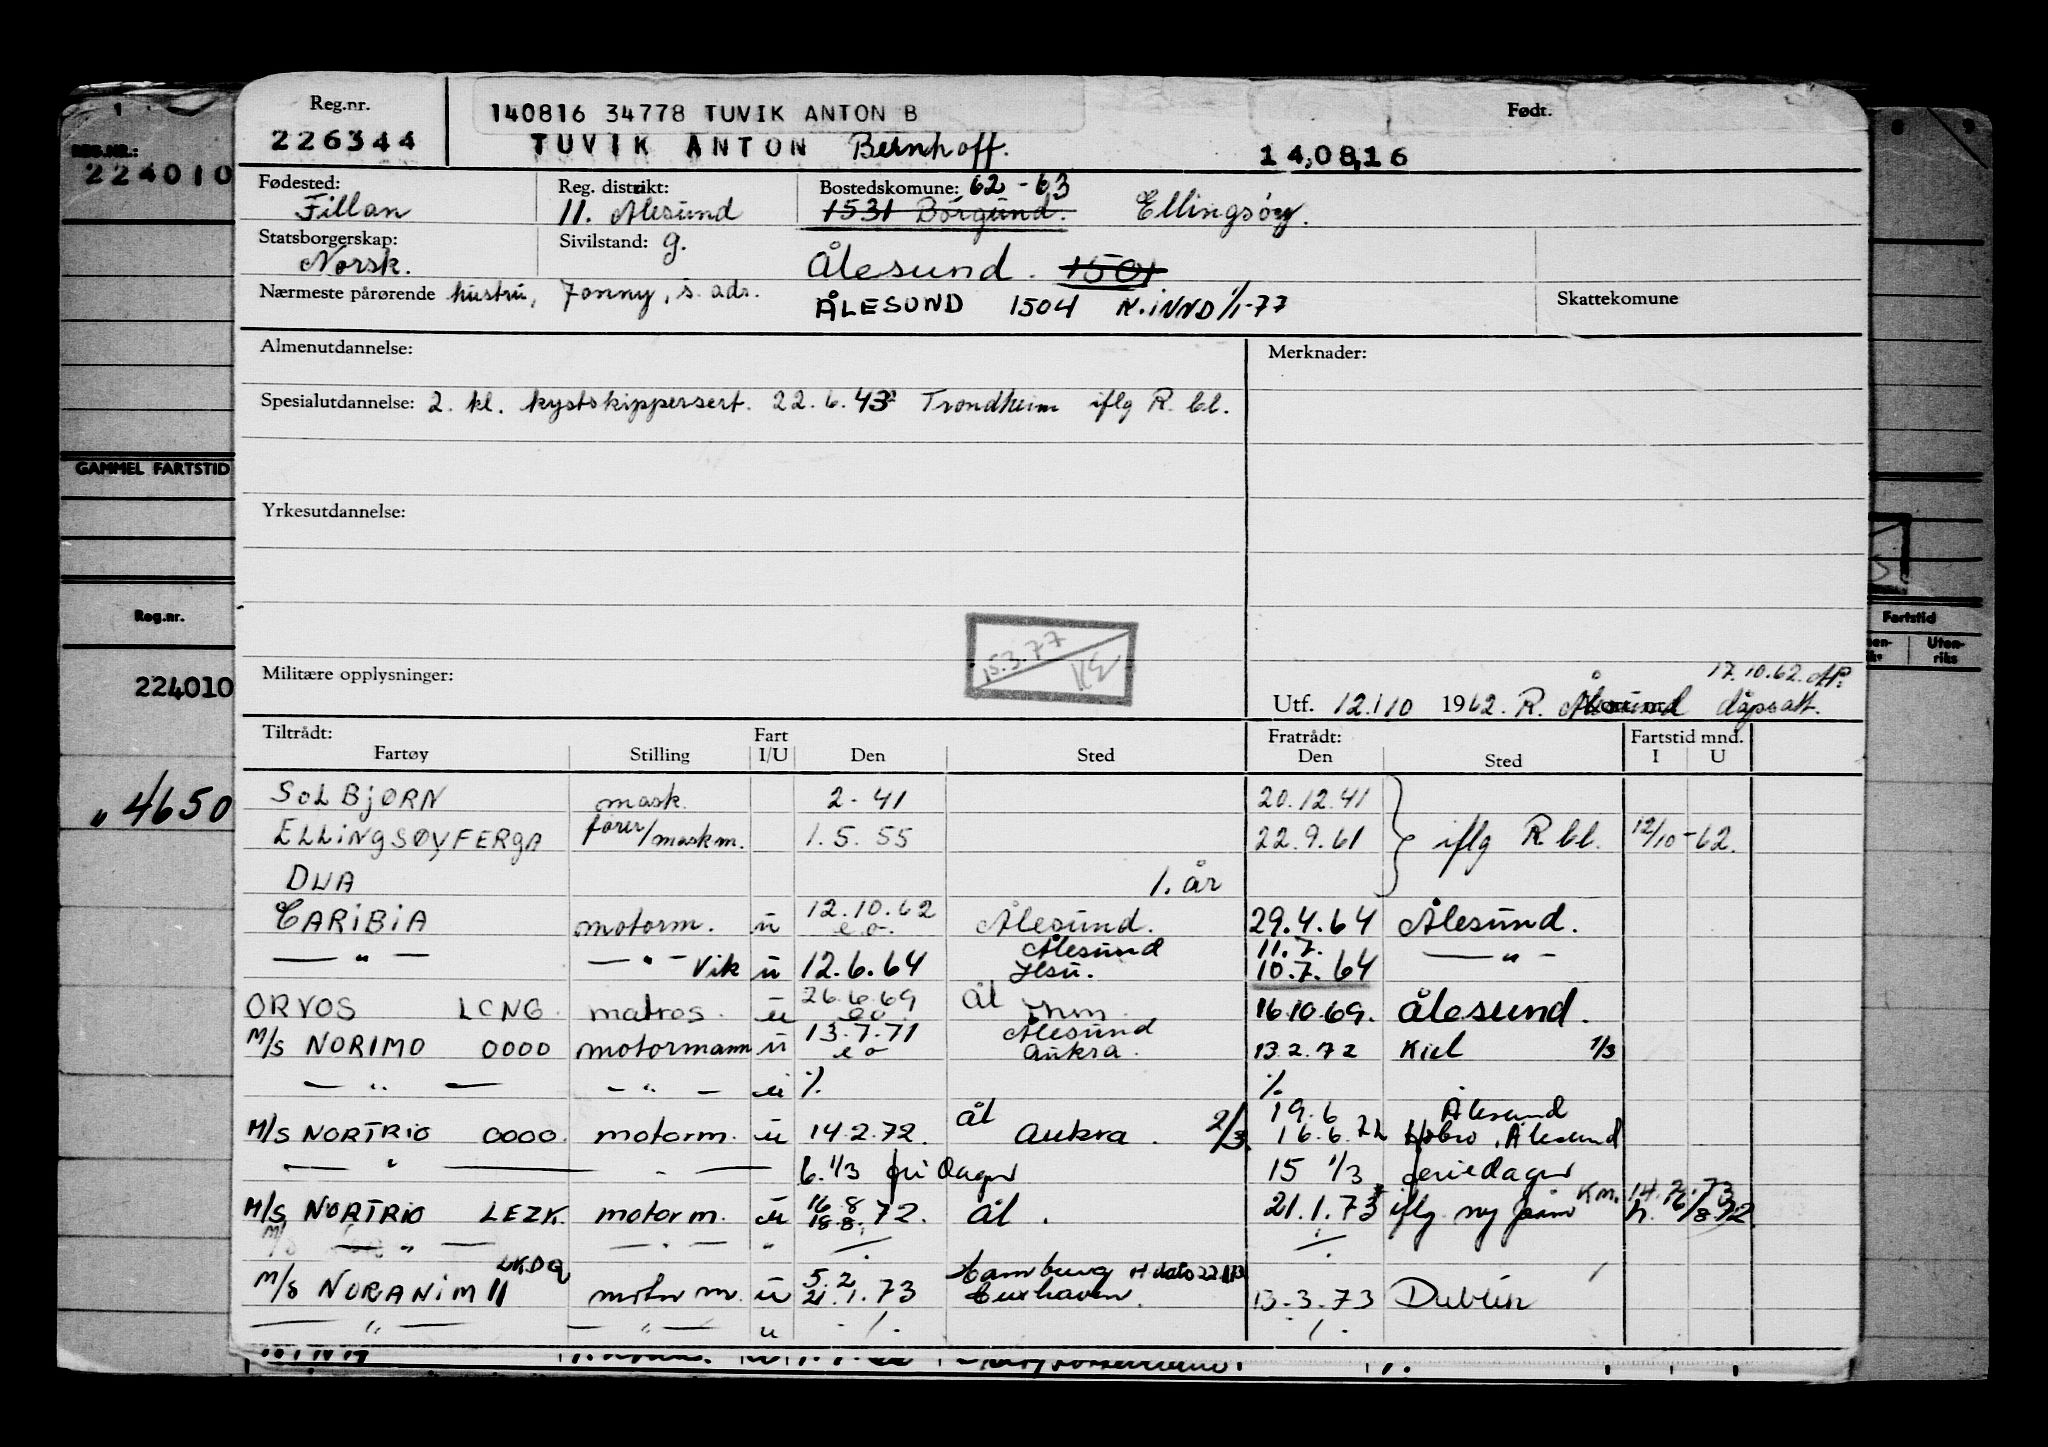 Reg.nr. 140816 34778 TUVIK ANTON B Født.
226344 TUVIK ANTON Bernhoff. 14.08.16
REG.NR.:
224010
Fødested: Reg. distrikt: Bostedskomune: 62-63
Fillan 11. Ålesund 1531 Borgund. Ellingsöy.
Statsborgerskap: Sivilstand: g.
Norsk. Ålesund. 1501
Nærmeste pårørende hustru, Jonny, s. adr. Skattekomune
ÅLESUND 1504 N.INND 1/1-77
Almenutdannelse: Merknader:
Spesialutdannelse: 2. kl. kystskippersert. 22.6.43 Trondheim iflg R. bl.
GAMMEL FARTSTID
Yrkesutdannelse:
Reg.nr.
224010
15.3.77
Militære opplysninger: 17.10.62.
Utf. 12/10 1962. R. Ålesund
Fartstid
Uten-
riks
Tiltrådt: Fart Fratrådt: Fartstid mnd.
Fartøy Stilling I/U Den Sted Den Sted I U
4650
SOLBJØRN mask. 2-41 20.12.41
ELLINGSØYFERGA fører/maskm. 1.5.55 22.9.61 iflg R bl. 12/10-62.
DUA 1. år
CARIBIA motorm. u 12.10.62 e.o. Ålesund. 29.4.64 Ålesund.
— " — — " — Vik u 12.6.64 Ålesund 11.7. 10.7.64 — " —
ORVOS LCNG matros. u 26.6.69 eo. Ål 16.10.69. Ålesund.
M/S NORIMO OOOO motormann u 13.7.71 eo Ålesund Aukra. 13.2.72 Kiel 1/3
— " — — " — u ./. ./.
M/S NORTRIO OOOO. motorm. u 14.2.72. Ål Aukra. 2/3 19.6 16.6.72 Ålesund Hobro, Ålesund
— " — — " — 6. 1/3 fri dager 15 1/3 feriedager
M/S NORTRIO LEZK motorm. u 16.8 18.8.72. Ål. 21.1.73 iflg ny
M/S — " — — " — " ./. ./.
M/S NORANIM II LKDQ motorm. u 5.2 21.1.73 Hamburg Cuxhaven. 13.3.73 Dublin
— " — — " — u ./. ./.